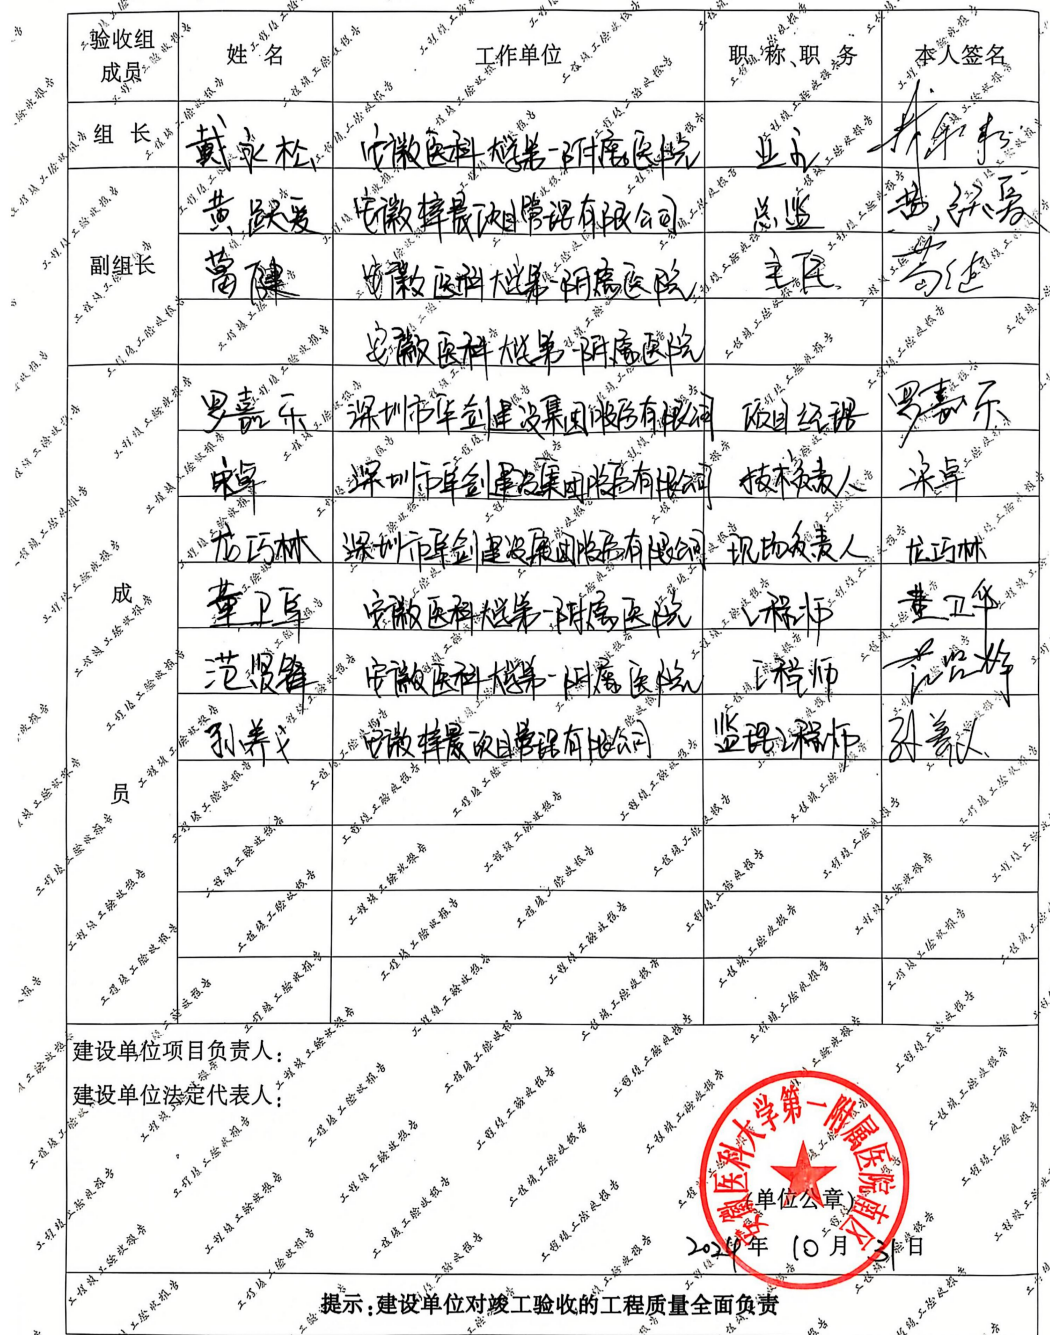 验收组成员 姓 名 工作单位 职 称、职 务 本人签名
组 长 戴永松 安徽医科大学第一附属医院 业主
副组长 黄跃爱 安徽梓晨项目管理有限公司 总监
葛健 安徽医科大学第一附属医院 主任 葛健
安徽医科大学第一附属医院
成员 罗嘉乐 深圳市华剑建设集团股份有限公司 项目经理 罗嘉乐
宋卓 深圳市华剑建设集团股份有限公司 技术负责人 宋卓
龙巧林 深圳市华剑建设集团股份有限公司 现场负责人 龙巧林
董卫华 安徽医科大学第一附属医院 工程师 董卫华
范贤锋 安徽医科大学第一附属医院 工程师
孙养义 安徽梓晨项目管理有限公司 监理工程师 孙养义
建设单位项目负责人：
建设单位法定代表人：
安徽医科大学第一附属医院南区
（单位公章）
2024年 10月 31日
提示：建设单位对竣工验收的工程质量全面负责
工程竣工验收报告